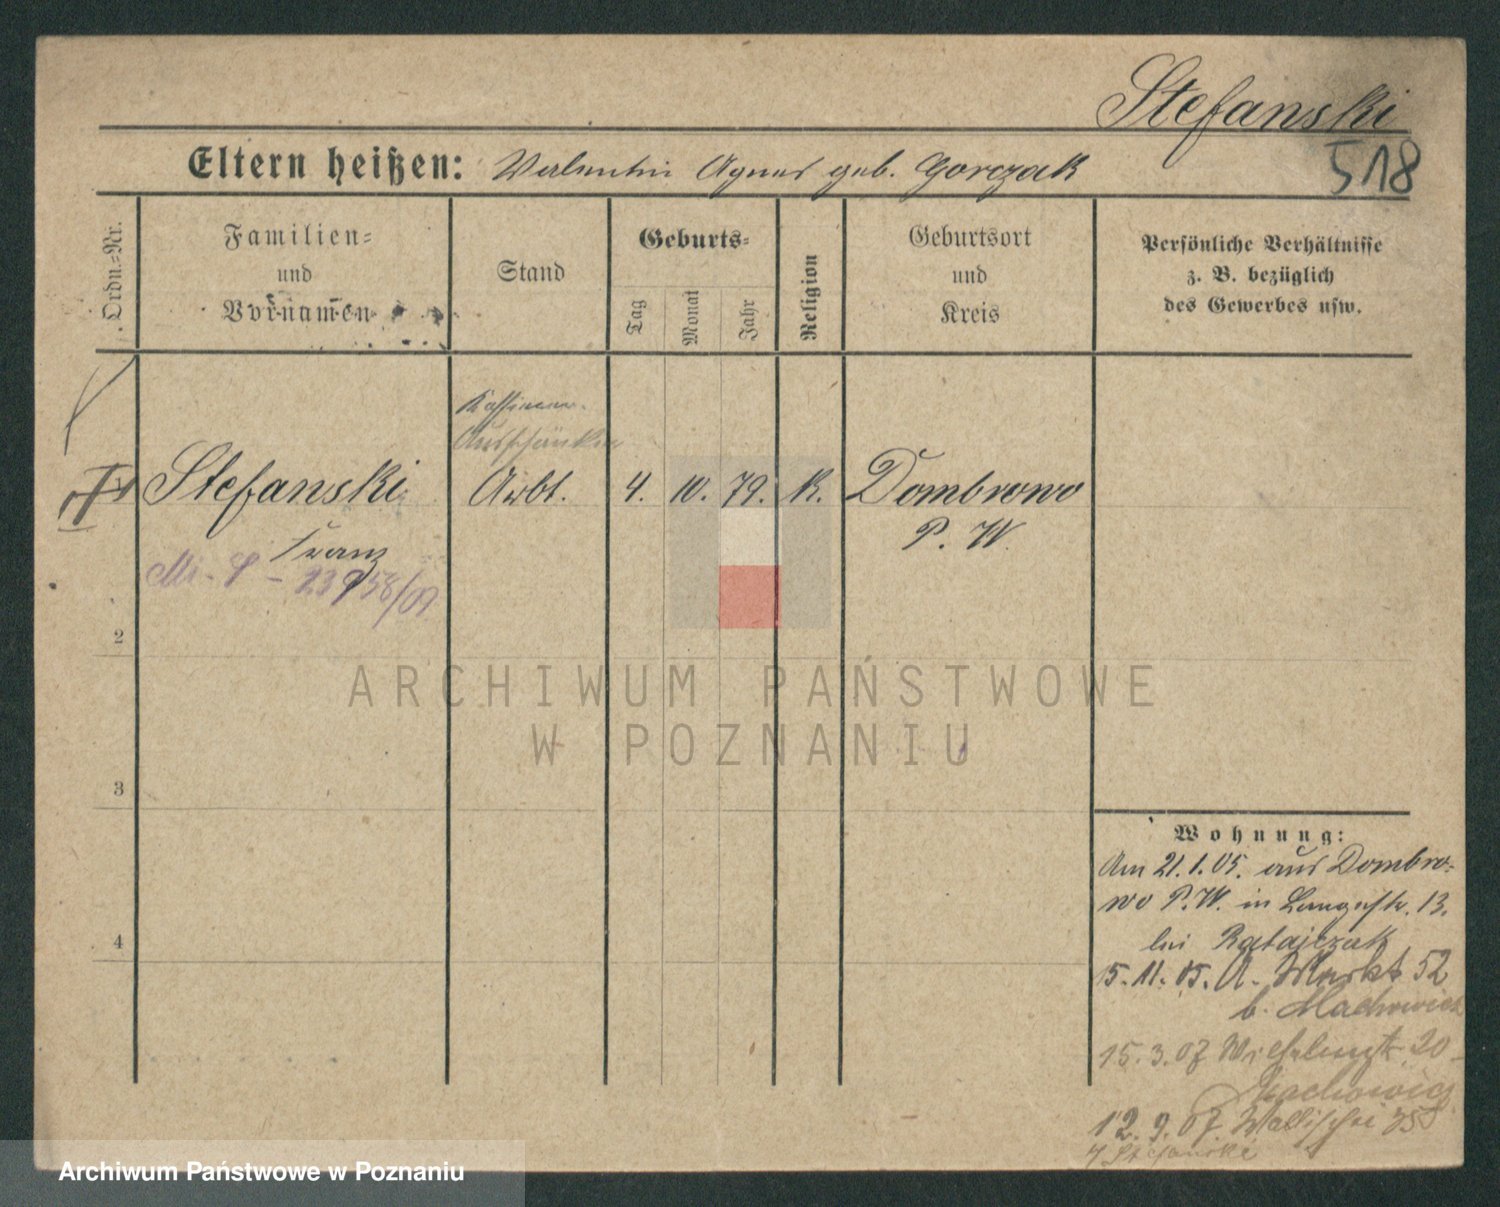 Stefanski
518
Eltern heißen: Valentin Agnes geb. Gorczak
Ordn.-Nr.
Familien-
und
Vornamen
Stand
Geburts-
Tag
Monat
Jahr
Religion
Geburtsort
und
Kreis
Persönliche Verhältnisse
z. B. bezüglich
des Gewerbes usw.
Stefanski Arbt. 4. 10. 79. K. Dombrowo
Franz P. W.
2
3
4
ARCHIWUM PAŃSTWOWE
W POZNANIU
Wohnung:
Am 21.1.05. aus Dombro-
wo P.W. in Langestr. 13.
bei Ratajczak
15.11.05. A. Markt 52
b. Machowicz
15.3.07 Wilhelmstr. 20
Machowicz
12.9.07 Wallischei
Stefanski
Archiwum Państwowe w Poznaniu